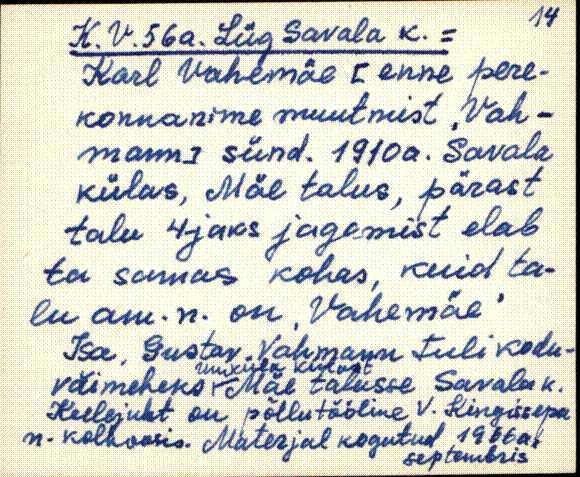 14
K. V. 56a. Lüg Savala k. =
Karl Vahemäe [ enne pere-
konnanime muutmist ‚Vah-
mann] sünd. 1910a. Savala
külas, Mäe talus, pärast
talu 4jaks jagamist elab
ta samas kohas, kuid ta-
lu am. n. on ‚Vahemäe'
Isa, Gustav Vahmann tuli kodu-
külast
väimeheks Mäe talusse Savala k.
Keelejuht on põllutööline V. Kingissepa
n. kolhoosis. Materjal kogutud 1956a.
septembris